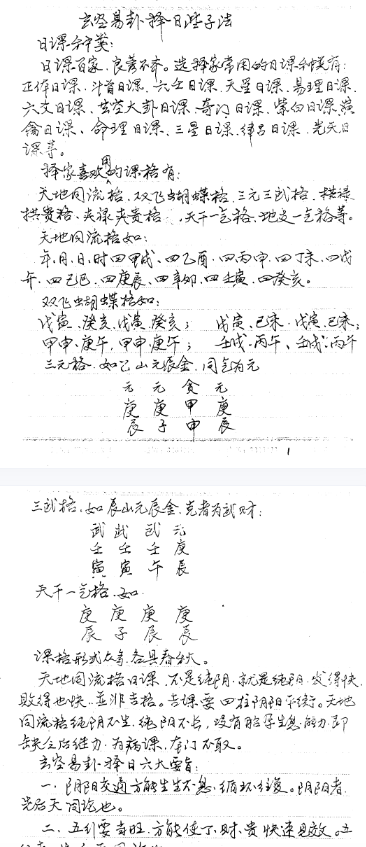 玄空易卦择日选子法
日课分类:
日课百家,良莠不齐。选择家常用的日课种类有:
正作日课、斗首日课、六壬日课、天星日课、易理日课、
六爻日课、玄空大卦日课、奇门日课、紫白日课、演
禽日课、命理日课、三星日课、律吕日课、先天日
课等。
择家喜欢用的课格有:
天地同流格、双飞蝴蝶格、三元三武格、拱禄
拱贵格、夹禄夹贵格、天干一气格、地支一气格等。
天地同流格如:
年、月、日、时四甲戌、四乙酉、四丙申、四丁未、四戊
午、四己巳、四庚辰、四辛卯、四壬寅、四癸亥。
双飞蝴蝶格如:
戊寅、癸亥、戊寅、癸亥; 戊寅、己未、戊寅、己未;
甲申、庚午、甲申、庚午; 壬戌、丙午、壬戌、丙午
三元格、如乙山元辰金、同气为元
元 元 贪 元
庚 庚 甲 庚
辰 子 申 辰
1
三武格、如辰山元辰金、克者为武财:
武 武 武 元
壬 壬 壬 庚
寅 寅 午 辰
天干一气格、如
庚 庚 庚 庚
辰 子 辰 辰
课格形式众多、各具春秋。
天地同流格日课、不是纯阴、就是纯阳、发得快
败得也快、并非吉格。吉课要四柱阴阳平衡。天地
同流格纯阴不生、纯阳不长,没有胎孕生息能力,即
缺乏后继力、为病课、本门不取。
玄空易卦择日六大要旨:
一、阴阳交通方能生生不息、循环往复。阴阳者,
先后天同论也。
二、五行要当旺、方能使丁、财、贵快速见效。五